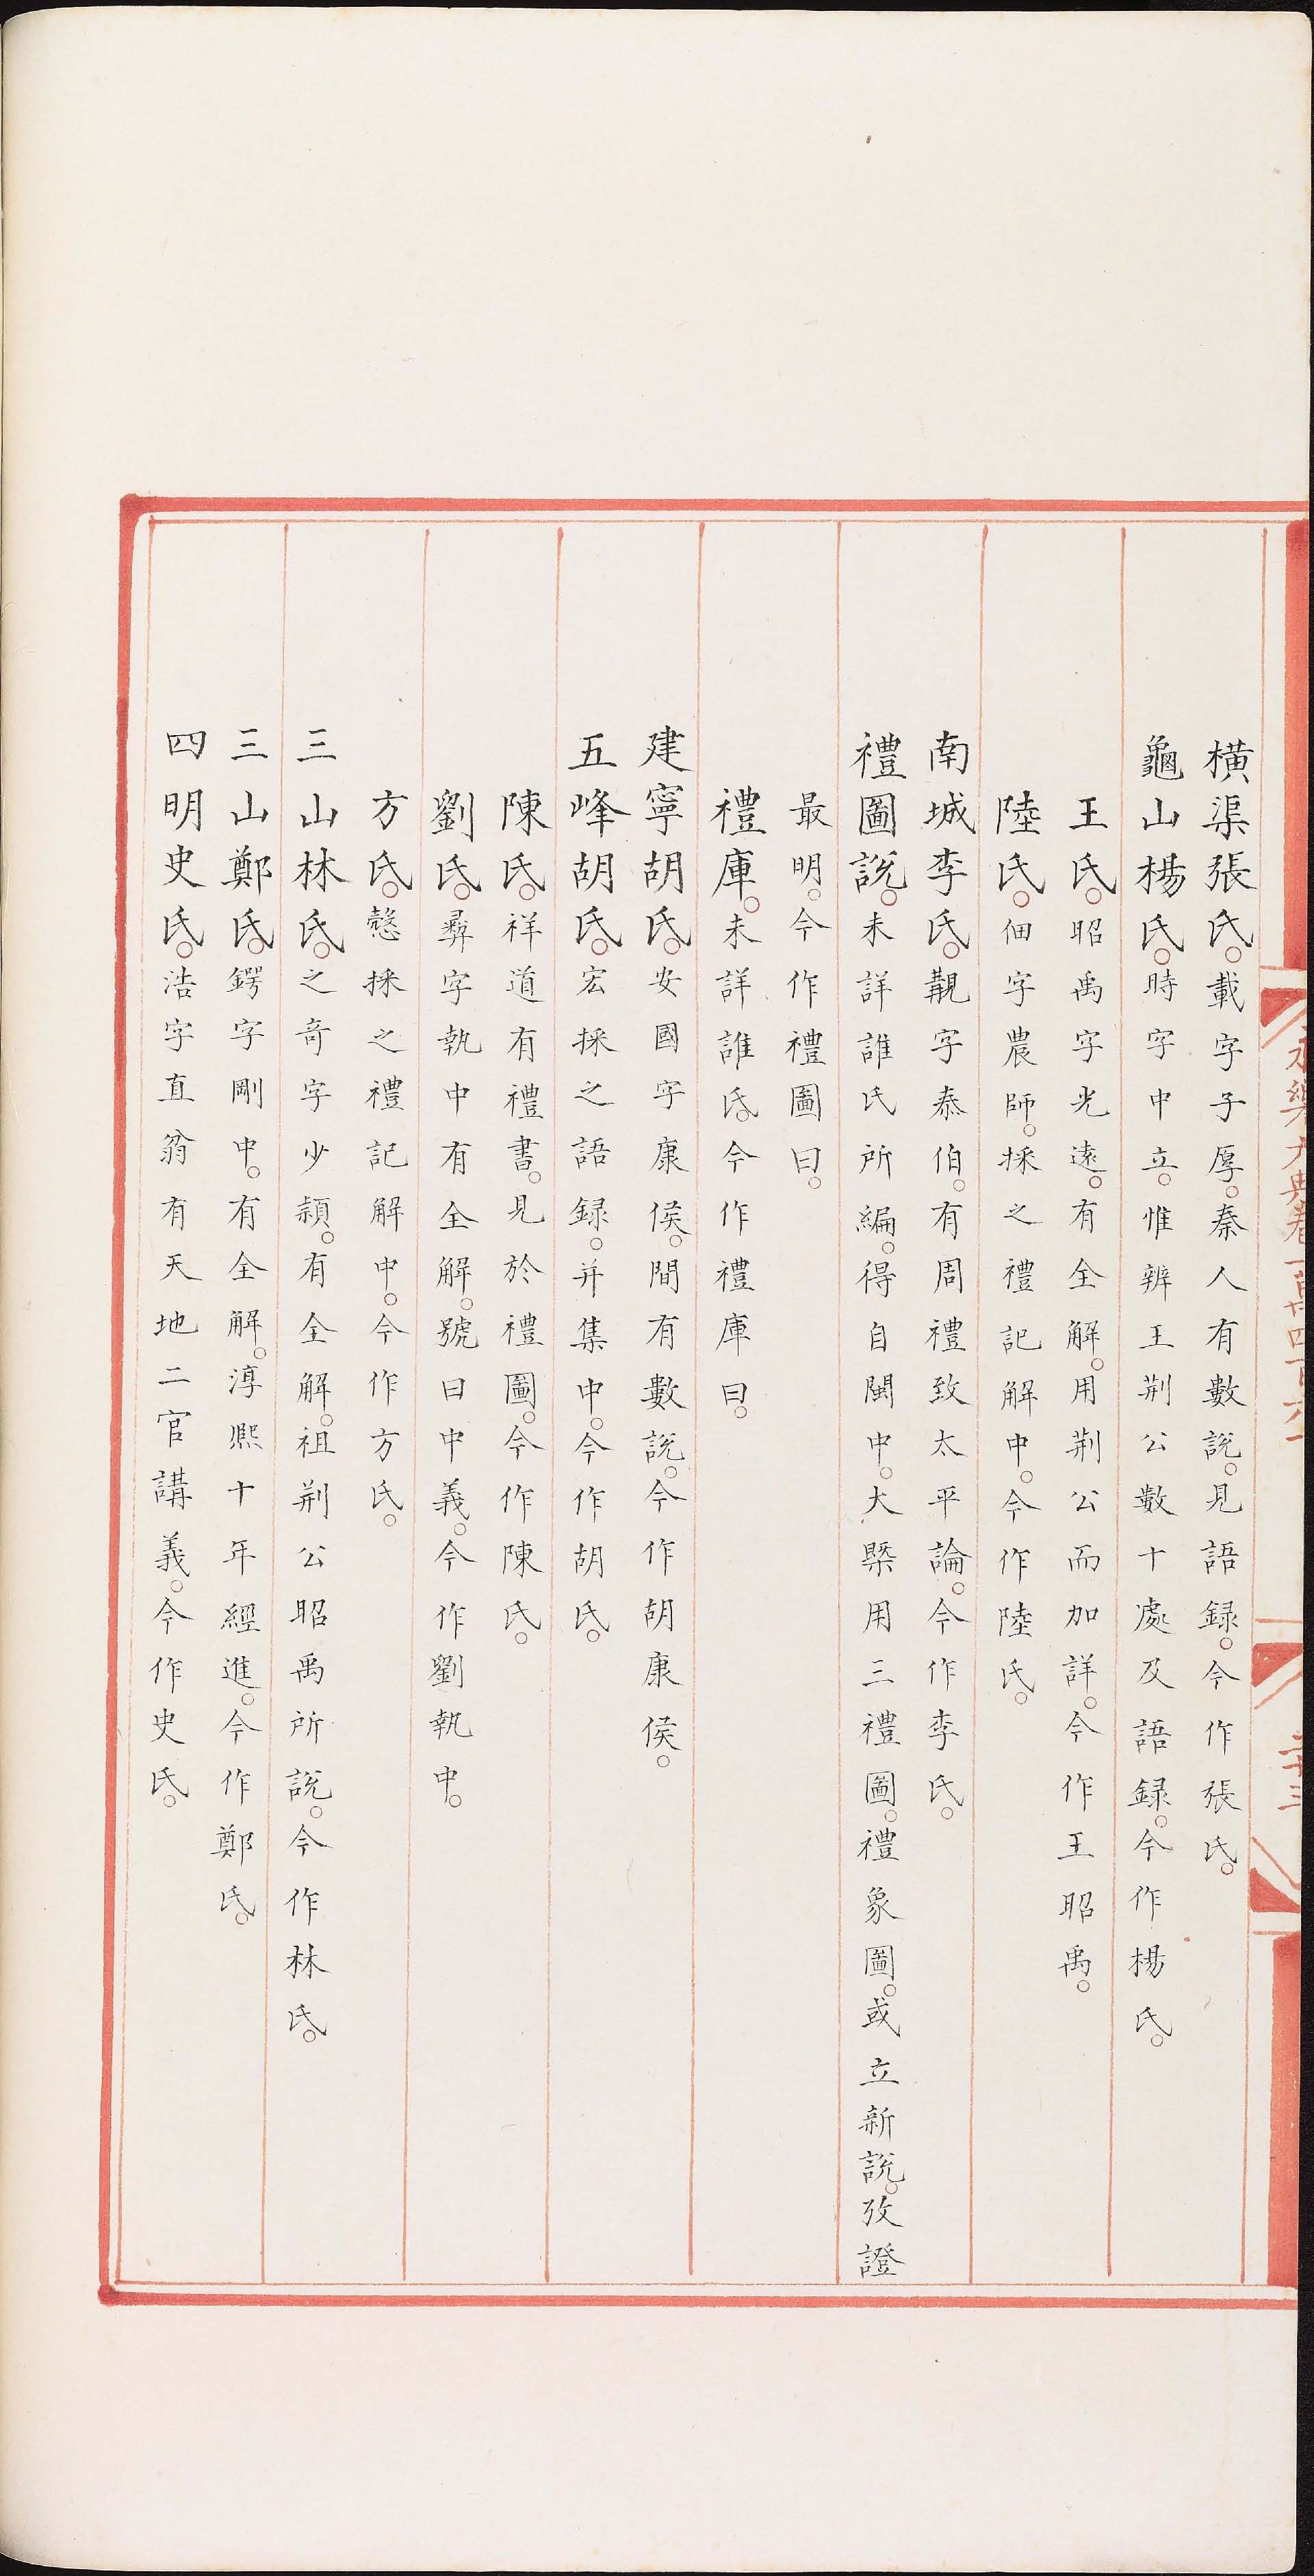 橫渠張氏。載字子厚。秦人有數說。見語録。今作張氏。
龜山楊氏。時字中立。惟辨王荆公數十處及語録。今作楊氏。
王氏。昭禹字光遠。有全解。用荆公而加詳。今作王昭禹。
陸氏。佃字農師。採之禮記解中。今作陸氏。
南城李氏。覯字泰伯。有周禮致太平論。今作李氏。
禮圖說。未詳誰氏所編。得自閩中。大槩用三禮圖。禮象圖。或立新說。攷證
最明。今作禮圖曰。
禮庫。未詳誰氏。今作禮庫曰。
建寧胡氏。安國字康侯。間有數說。今作胡康侯。
五峰胡氏。宏採之語録。并集中。今作胡氏。
陳氏。祥道有禮書。見於禮圖。今作陳氏。
劉氏。彛字執中有全解。號曰中義。今作劉執中。
方氏。慤採之禮記解中。今作方氏。
三山林氏。之竒字少穎。有全解。祖荆公昭禹所說。今作林氏。
三山鄭氏。鍔字剛中。有全解。淳熈十年經進。今作鄭氏。
四明史氏。浩字直翁有天地二官講義。今作史氏。
永樂大典卷一萬四百六十
二十三